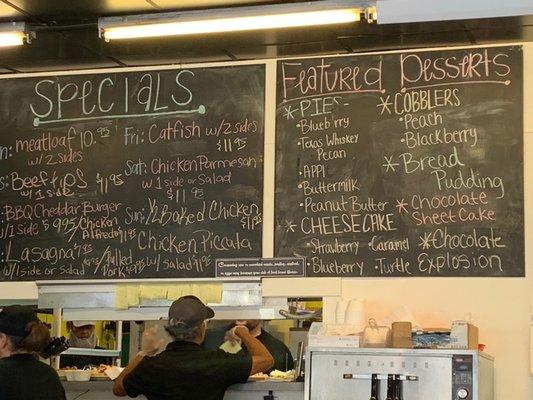 Specials
meatloaf 10.95
w/2 sides
Beef tips
w/1 side $11.95
BBQ Cheddar Burger
w/1 side $9.95
Chicken
Alfredo $11.95
Lasagna
w/1 side or salad
Pulled
Pork
Fri: Catfish w/2 sides
$11.95
Sat: Chicken Parmesan
w/1 side or Salad
$11.95
Sun: 1/2 Baked Chicken
Chicken Piccata
w/ salad $11.95
Featured Desserts
* PIES -
- Blueberry
- Texas Whiskey
Pecan
- APPl
- Buttermilk
- Peanut Butter
* CHEESECAKE
- Strawberry - Caramel
- Blueberry - Turtle
* COBBLERS
- Peach
- Blackberry
* Bread
Pudding
* Chocolate
Sheet Cake
* Chocolate
Explosion